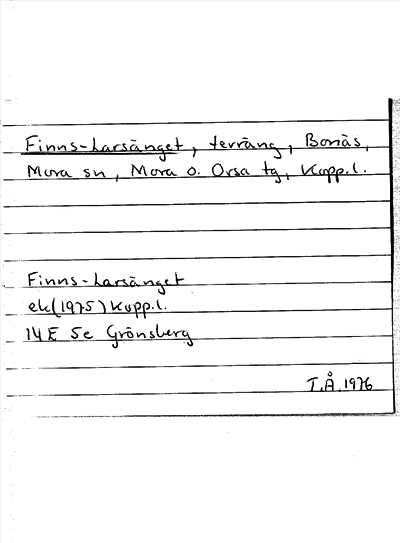 Finns-Larsänget, terräng, Bonäs,
Mora sn, Mora o. Orsa tg, Kopp.l.
Finns-Larsänget
ek(1975) Kopp.l.
14E 5e Grönsberg
T.Å. 1976